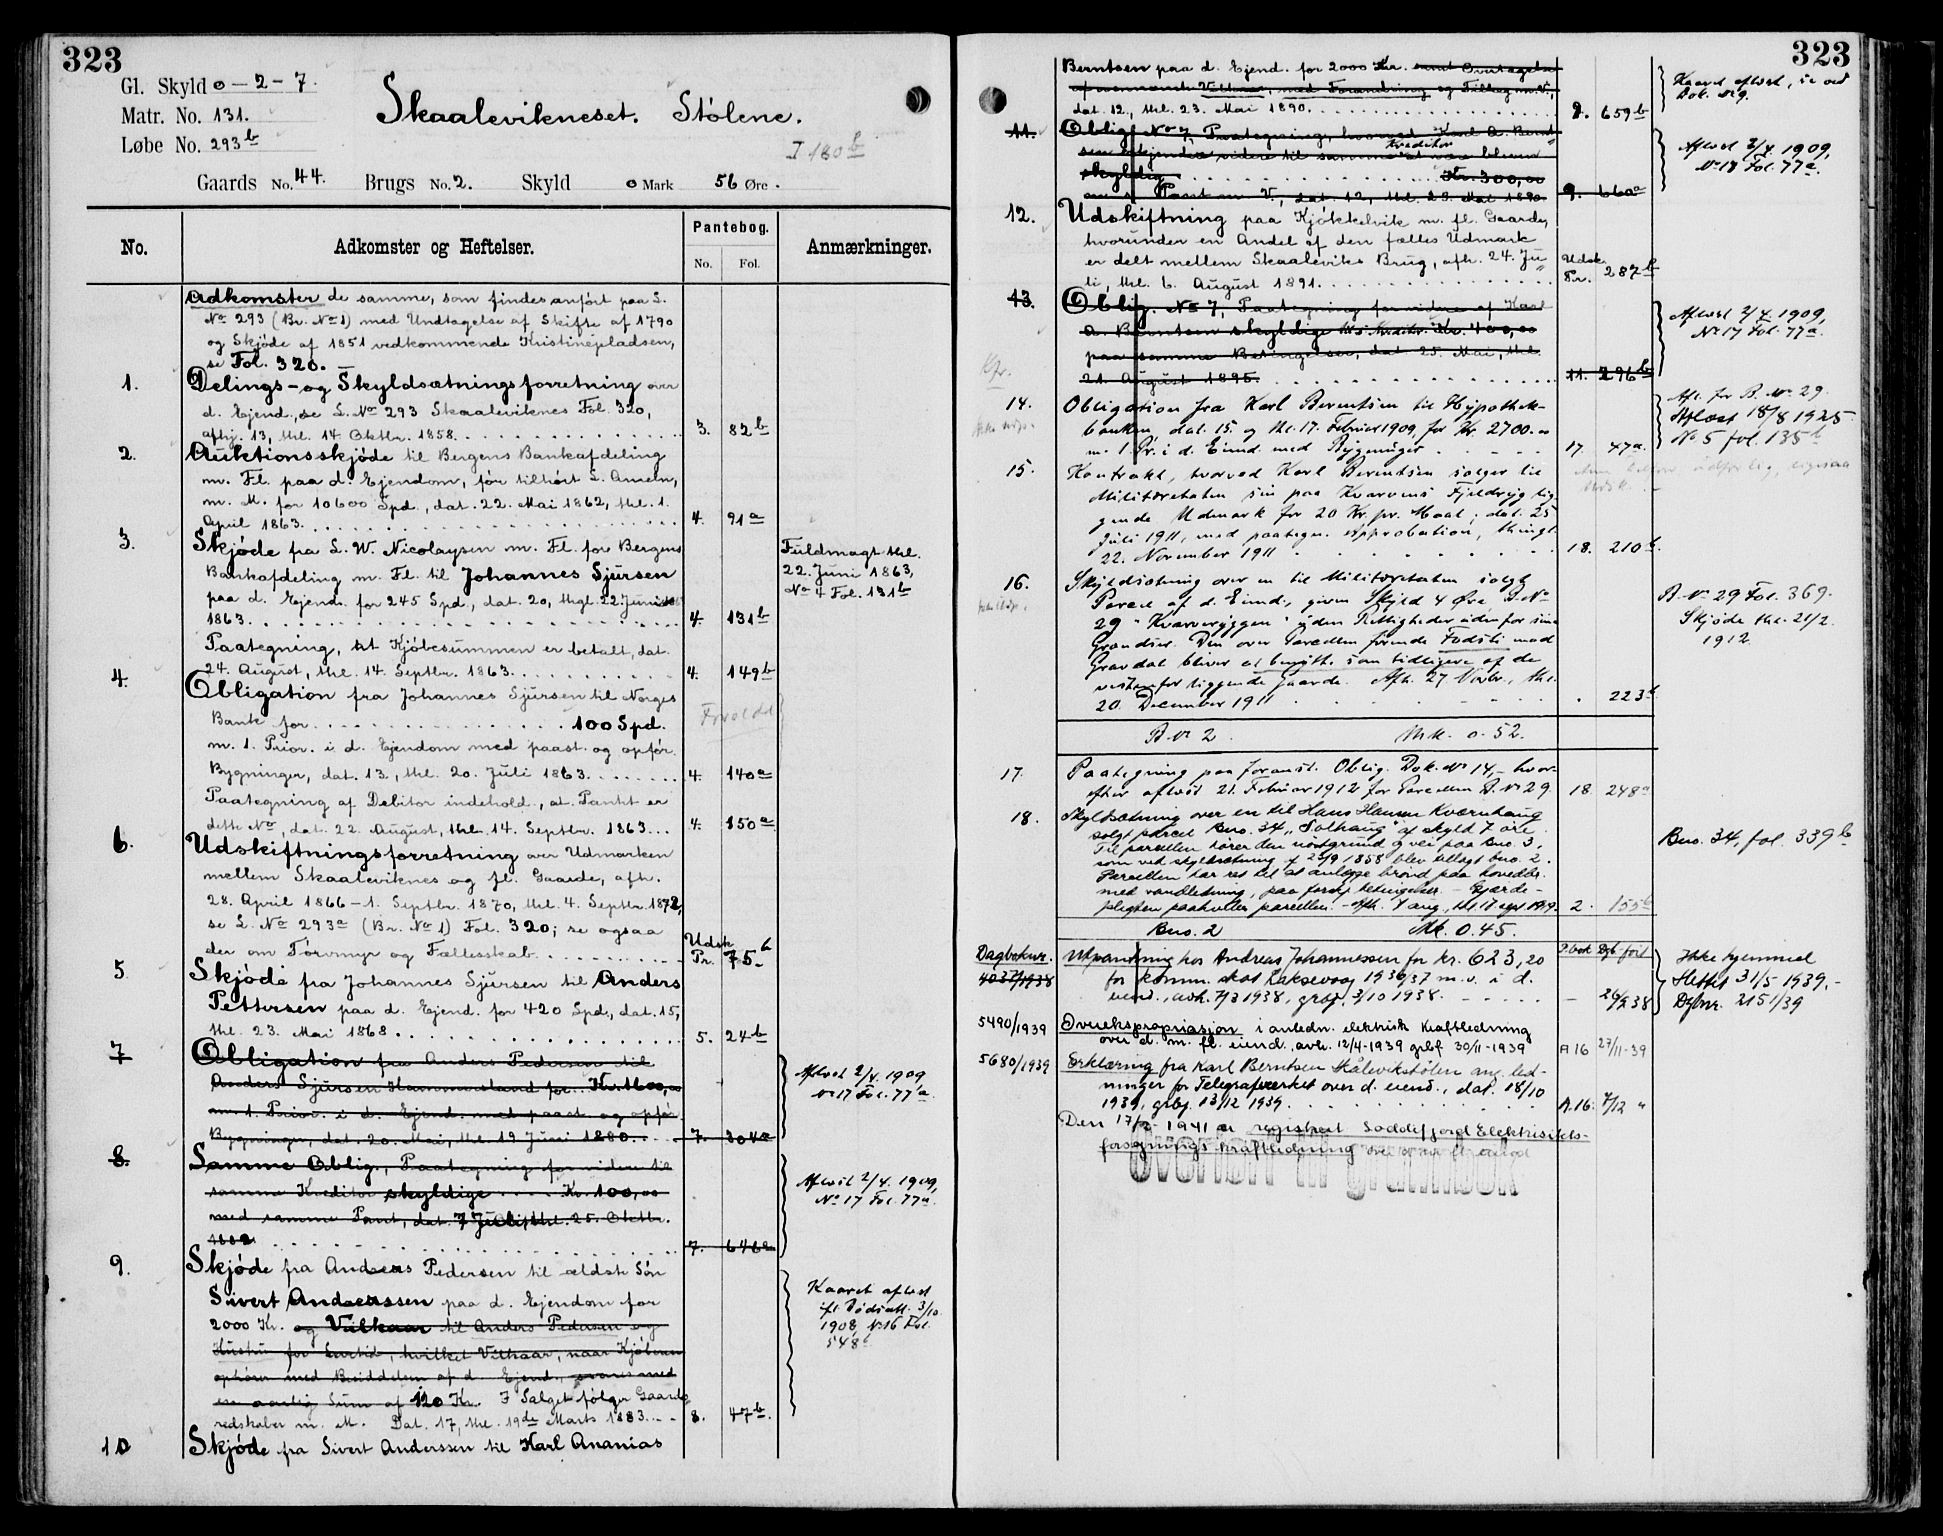 323
Gl. Skyld 0 - 2 - 7.
Matr. No. 131.
Løbe No. 293 b
Skaalevikneset. Stólene.
I 180 b
Gaards No. 44. Brugs No. 2. Skyld 0 Mark 56 Øre.
No. Adkomster og Heftelser. Pantebog. No. Fol. Anmærkninger.
Adkomster de samme, som findes anført paa L.
No 293 (Br. No 1) med Undtagelse af Skifte af 1790
og Skjöde af 1851 vedkommende Kristinepladsen,
se Fol. 320.
1. Delings- og Skyldsætningsforretning over
d. Ejend., se L. No 293 Skaaleviknes Fol. 320,
afhj. 13, thl. 14. Oktbr. 1858. 3. 82 b
2. Auktionsskjöde til Bergens Bankafdeling
m. Fl. paa d. Ejendom, før tilhørt L. Ameln,
m. M. for 10600 Spd., dat. 22. Mai 1862, thl. 1.
April 1863. 4. 91 a
3. Skjöde fra L. W. Nicolaysen m. Fl. for Bergens
Bankafdeling m. Fl. til Johannes Sjursen
paa d. Ejend. for 245 Spd., dat. 20, thgl. 22 Juni
1863. 4. 131 b
Fuldmagt thl.
22. Juni 1863,
No 4 Fol. 131 b
Paategning, at Kjöbesummen er betalt, dat.
24. August, thl. 14. Septbr. 1863. 4. 149 b
4. Obligation fra Johannes Sjursen til Norges
Bank for 100 Spd.
m. 1. Prior. i d. Ejendom med paast. og opför.
Bygninger, dat. 13., thl. 20. Juli 1863. 4. 140 a
Paategning af Debitor indehold., at Pantet er
dette No, dat. 22. August, thl. 14. Septbr. 1863. 4. 150 a
6. Udskiftningsforretning over Udmarken
mellem Skaaleviknes og fl. Gaarde, afh.
28. April 1866 - 1. Septbr. 1870, thl. 4. Septbr. 1872,
se L. No 293 a (Br. No 1) Fol. 320; se ogsaa
der om Törvmyr og Fællesskab. Udsk. Pr. 75 b
5. Skjöde fra Johannes Sjursen til Anders
Pettersen paa d. Ejend. for 420 Spd., dat. 15,
thl. 23. Mai 1868. 5. 24 b
7 Obligation fra Anders Pedersen til
Anders Sjursen Hammersland for Kr. 1600,00
m. 1. Prior. i d. Ejend. med paast. og opför.
Bygninger, dat. 20. Mai, thl. 19 Juni 1880. 7. 304 a
Aflæst 2/4. 1909,
No 17 Fol. 77 a.
8. Samme Oblig., Paategning for videre til
samme Kreditor skyldige Kr. 100,00
med samme Pant, dat. 7 Juli, thl. 25. Oktbr.
1882 7. 646 a
Aflæst 2/4. 1909,
No 17 Fol. 77 a.
9. Skjöde fra Anders Pedersen til ældste Sön
Sivert Anderssen paa d. Ejendom for
2000 Kr. og Vilkaar til Anders Pedersen og
Hustru for Livstid, hvilket Vilkaar, naar Kjöberen
ophører med Besiddelsen af d. Ejend., svares med
en aarlig Sum af 120 Kr. I Salget følger Gaards-
redskaber m. M. Dat. 17, thl. 19de Marts 1883. 8. 47 b.
Kaaret aflæst
ifl. Dödsatt. 3/10
1908, No 16 Fol.
548 b
10 Skjöde fra Sivert Anderssen til Karl Ananias
323
Berntsen paa d. Ejend. for 2000 Kr. samt Overtagelse
af nævnende Vilkaar, med Forandring og Tillæg m. V.,
dat. 12, thl. 23. Mai 1890. 9. 659 b
Kaaret aflæst, se ved
Dok. No 9.
11. Oblig. No 7, Paategning, hvorved Karl A. Bernt-
sen erkjender videre til samme Kreditor at være bleven
skyldig Kr. 300,00
Pant m. V., dat. 12, thl. 23. Mai 1890. 9. 660 a
Aflæst 2/4. 1909,
No 17 Fol. 77 a.
12. Udskiftning paa Kjökkelvik m. fl. Gaarde,
hvorunder en Andel af den fælles Udmark
er delt mellem Skaaleviks Brug, afh. 24. Ju-
li, thl. 6. August 1891. Udsk. Pr. 287 b
13. Oblig. No 7, Paategning for videre af Karl
A. Berntsen skyldige til s. Kreditor Kr. 400,00
paa samme Betingelser, dat. 25. Mai, thl.
21. August 1895. 11. 296 b
Aflæst 2/4. 1909,
No 17 Fol. 77 a.
14. Obligation fra Karl Berentsen til Hypothek-
banken, dat. 15. og thl. 17. Februar 1909, for Kr. 2700.00
m. 1. Pr. i d. Eiend. med Bygninger. 17. 47 a.
Afl. for B. No 29.
Aflæst 18/8 1925
No 5 fol. 135 b
15. Kontrakt, hvorved Karl Berentsen sælger til
Militæretaten sin paa Kvarvens Fjeldryg lig-
gende Udmark for 20 Kr. pr. Maal; dat. 25
Juli 1911, med paategn. Approbation, thingl.
22. November 1911 18. 210 b.
16. Skyldsætning over en til Militæretaten solgt
Parcel af d. Eiend., given Skyld 4 Øre, B. No
29 "Kvarveryggen" uden Rettigheder udenfor sine
Grændser. Den over Parcellen förende Fodsti mod
Gravdal bliver at benytte som tidligere af de
vestenfor liggende Gaarde. Afh. 27 Novbr., thl.
20. December 1911 223 b
B. No 29 Fol. 369.
Skjöde thl. 21/2.
1912
B. No 2. Mk. 0.52.
17. Paategning paa foranst. Oblig. Dok. No 14, - hvor-
efter aflæst 21. Februar 1912 for Parcellen B. No 29. 18. 248 a
18. Skyldsætning over en til Hans Hansen Kvernhaug
solgt parcel Bno. 34 "Solhaug" af skyld 7 øre.
Til parcellen hører den nöstgrund og vei paa Bno. 3,
som ved skyldsætning af 25/9 1858 blev tillagt bno. 2.
Parcellen har ret til at anlægge brönd paa hovedbr.
med vandledning, paa forskj. betingelser. - Gjerde-
pligten paahviler parcellen. - Afh. 7 aug., thl. 17 sept 1919. 2. 155 b
Bno. 34, fol. 339 b
Bno. 2 Mk. 0.45.
Dagboknr.
4037/1938 Utpantning hos Andreas Johannessen for kr. 623,20
for komm. skat Laksevaag 1936/37 m.v. i d.
eiend., avh. 7/3 1938, grbf. 3/10 1938. - 26/9 38
P.bok Dgb. ført
Ikke hjemmel
Slettet 31/5 1939.-
Dgbnr. 2151/39
5490/1939 Overekspropriasjon i anledn. elektrisk kraftledning
over d. m. fl. eiend., avh. 12/4-1939 grbf 30/11-1939 A 16 27/11-39
5680/1939 Erklæring fra Karl Berntsen Skålevikstølen ang. led-
ninger for Telegrafverket over d. eiend., dat. 18/10
1939, grbf. 13/12 1939. A. 16. 7/12 "
Den 17/12-1941 er registrert Soddefjord Elektrisitets-
forsynings kraftledning over
Overført til grunnbok